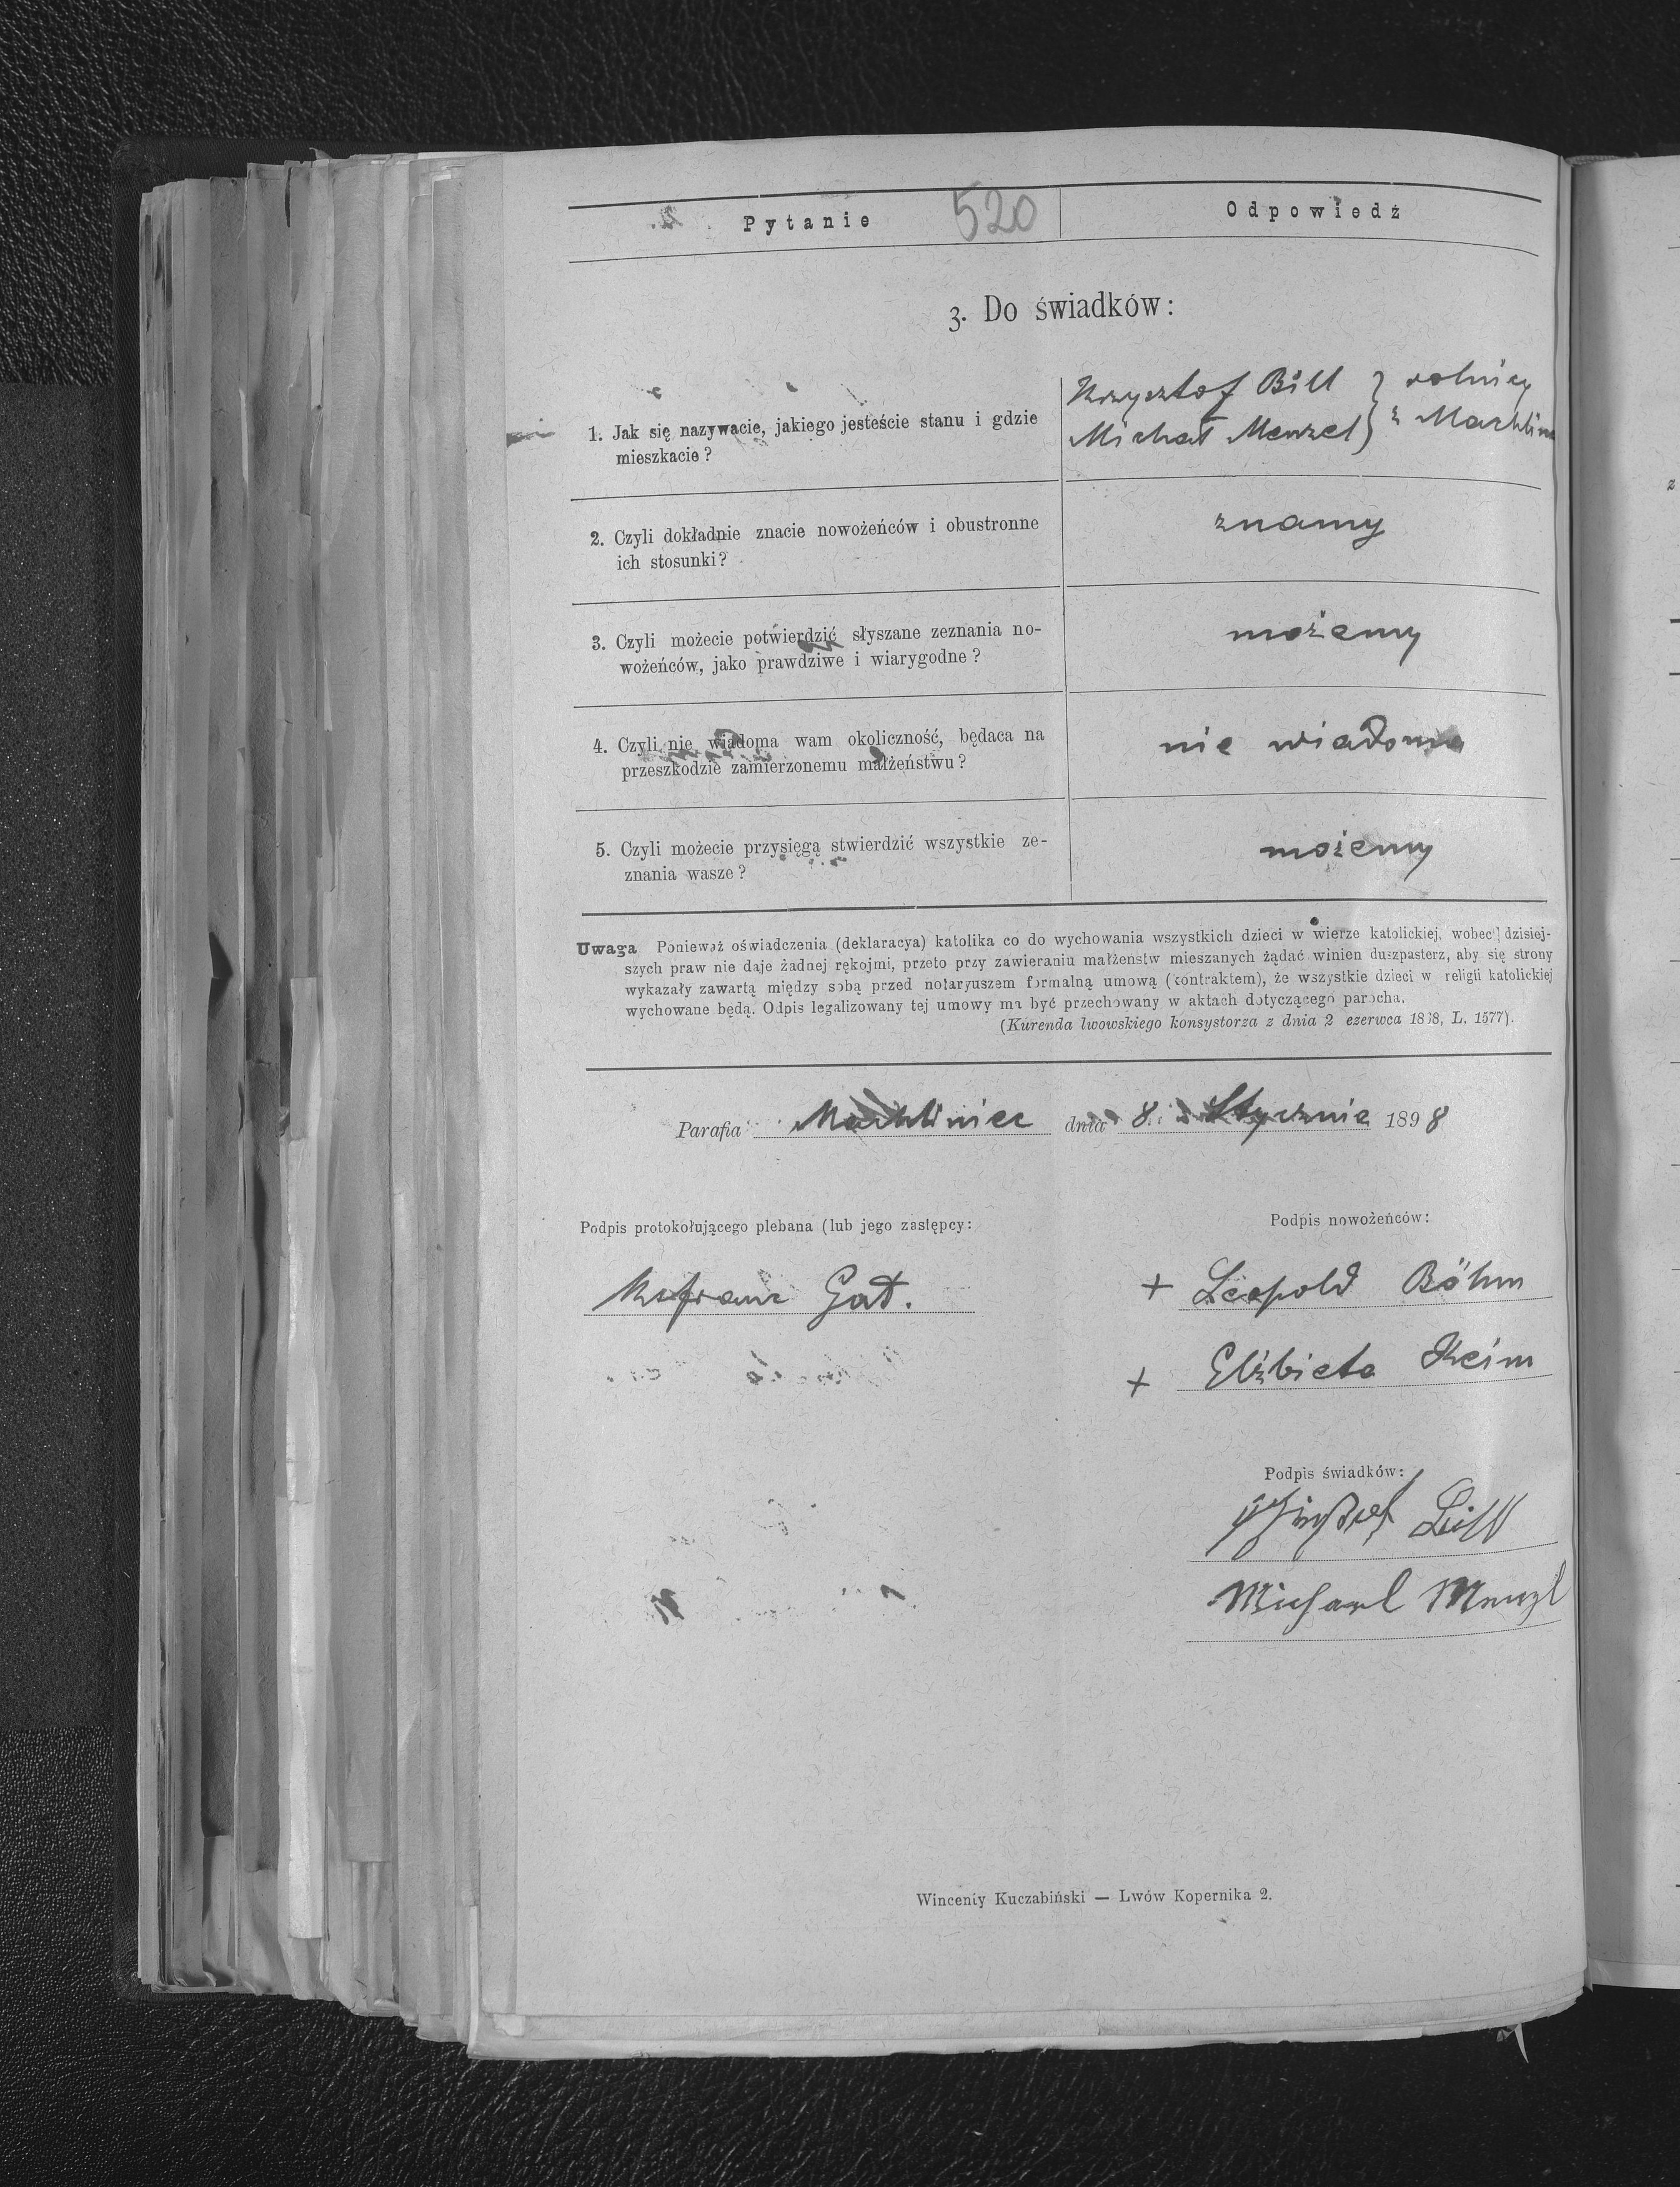 Pytanie 520 Odpowiedź
3. Do świadków:
Krzysztof Bill } rolnicy
1. Jak się nazywacie, jakiego jesteście stanu i gdzie
Michał Menzel } z Machlińca
mieszkacie?
2. Czyli dokładnie znacie nowożeńców i obustronne
znamy
ich stosunki?
3. Czyli możecie potwierdzić słyszane zeznania no-
możemy
wożeńców, jako prawdziwe i wiarygodne?
4. Czyli nie wiadoma wam okoliczność, będaca na
nie wiadoma
przeszkodzie zamierzonemu małżeństwu?
5. Czyli możecie przysięgą stwierdzić wszystkie ze-
możemy
znania wasze?
Uwaga Ponieważ oświadczenia (deklaracya) katolika co do wychowania wszystkich dzieci w wierze katolickiej, wobec dzisiej-
szych praw nie daje żadnej rękojmi, przeto przy zawieraniu małżeństw mieszanych żądać winien duszpasterz, aby się strony
wykazały zawartą między sobą przed notaryuszem formalną umową (kontraktem), że wszystkie dzieci w religii katolickiej
wychowane będą. Odpis legalizowany tej umowy ma być przechowany w aktach dotyczącego parocha.
(Kurenda lwowskiego konsystorza z dnia 2 czerwca 1868, L. 1577).
Parafia Machliniec dnia 8. Stycznia 1898
Podpis protokołującego plebana (lub jego zastępcy:
Podpis nowożeńców:
Gat.
+ Leopold Böhm
+ Elżbieta Keim
Podpis świadków:
Bill
Michael Menzl
Wincenty Kuczabiński — Lwów Kopernika 2.